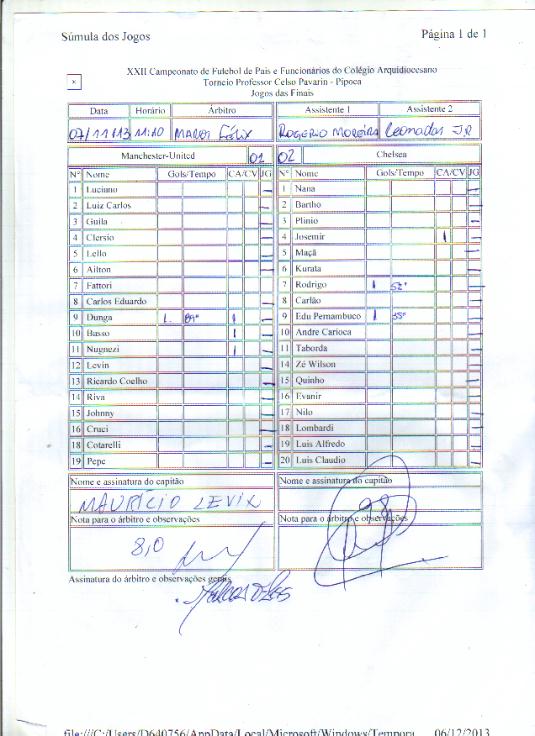 Súmula dos Jogos
Página 1 de 1
XXII Campeonato de Futebol de Pais e Funcionários do Colégio Arquidiocesano
Torneio Professor Celso Pavarin - Pipoca
Jogos das Finais
Data Horário Árbitro Assistente 1 Assistente 2
07/11/13 11:10 Félix ROGERIO MOREIRA Leonardas JR
Manchester-United 01 02 Chelsea
Nº Nome Gols/Tempo CA/CV JG Nº Nome Gols/Tempo CA/CV JG
1 Luciano 1 Nana
2 Luiz Carlos 2 Bartho
3 Guila 3 Plinio
4 Clersio 4 Josemir 1
5 Lello 5 Maçã
6 Ailton 6 Kurata
7 Fattori 7 Rodrigo 1 52'
8 Carlos Eduardo 8 Carlão
9 Dunga 1 1 9 Edu Pernambuco 1 35'
10 Basso 1 10 Andre Carioca
11 Nugnezi 1 11 Taborda
12 Levin 14 Zé Wilson
13 Ricardo Coelho 15 Quinho
14 Riva 16 Evanir
15 Johnny 17 Nilo
16 Cruci 18 Lombardi
18 Cotarelli 19 Luis Alfredo
19 Pepe 20 Luis Claudio
Nome e assinatura do capitão Nome e assinatura do capitão
MAURÍCIO LEVIX
Nota para o árbitro e observações Nota para o árbitro e observações
8,0
Assinatura do árbitro e observações gerais
file:///C:/Users/D640756/AppData/Local/Microsoft/Windows/Tempora 06/12/2013